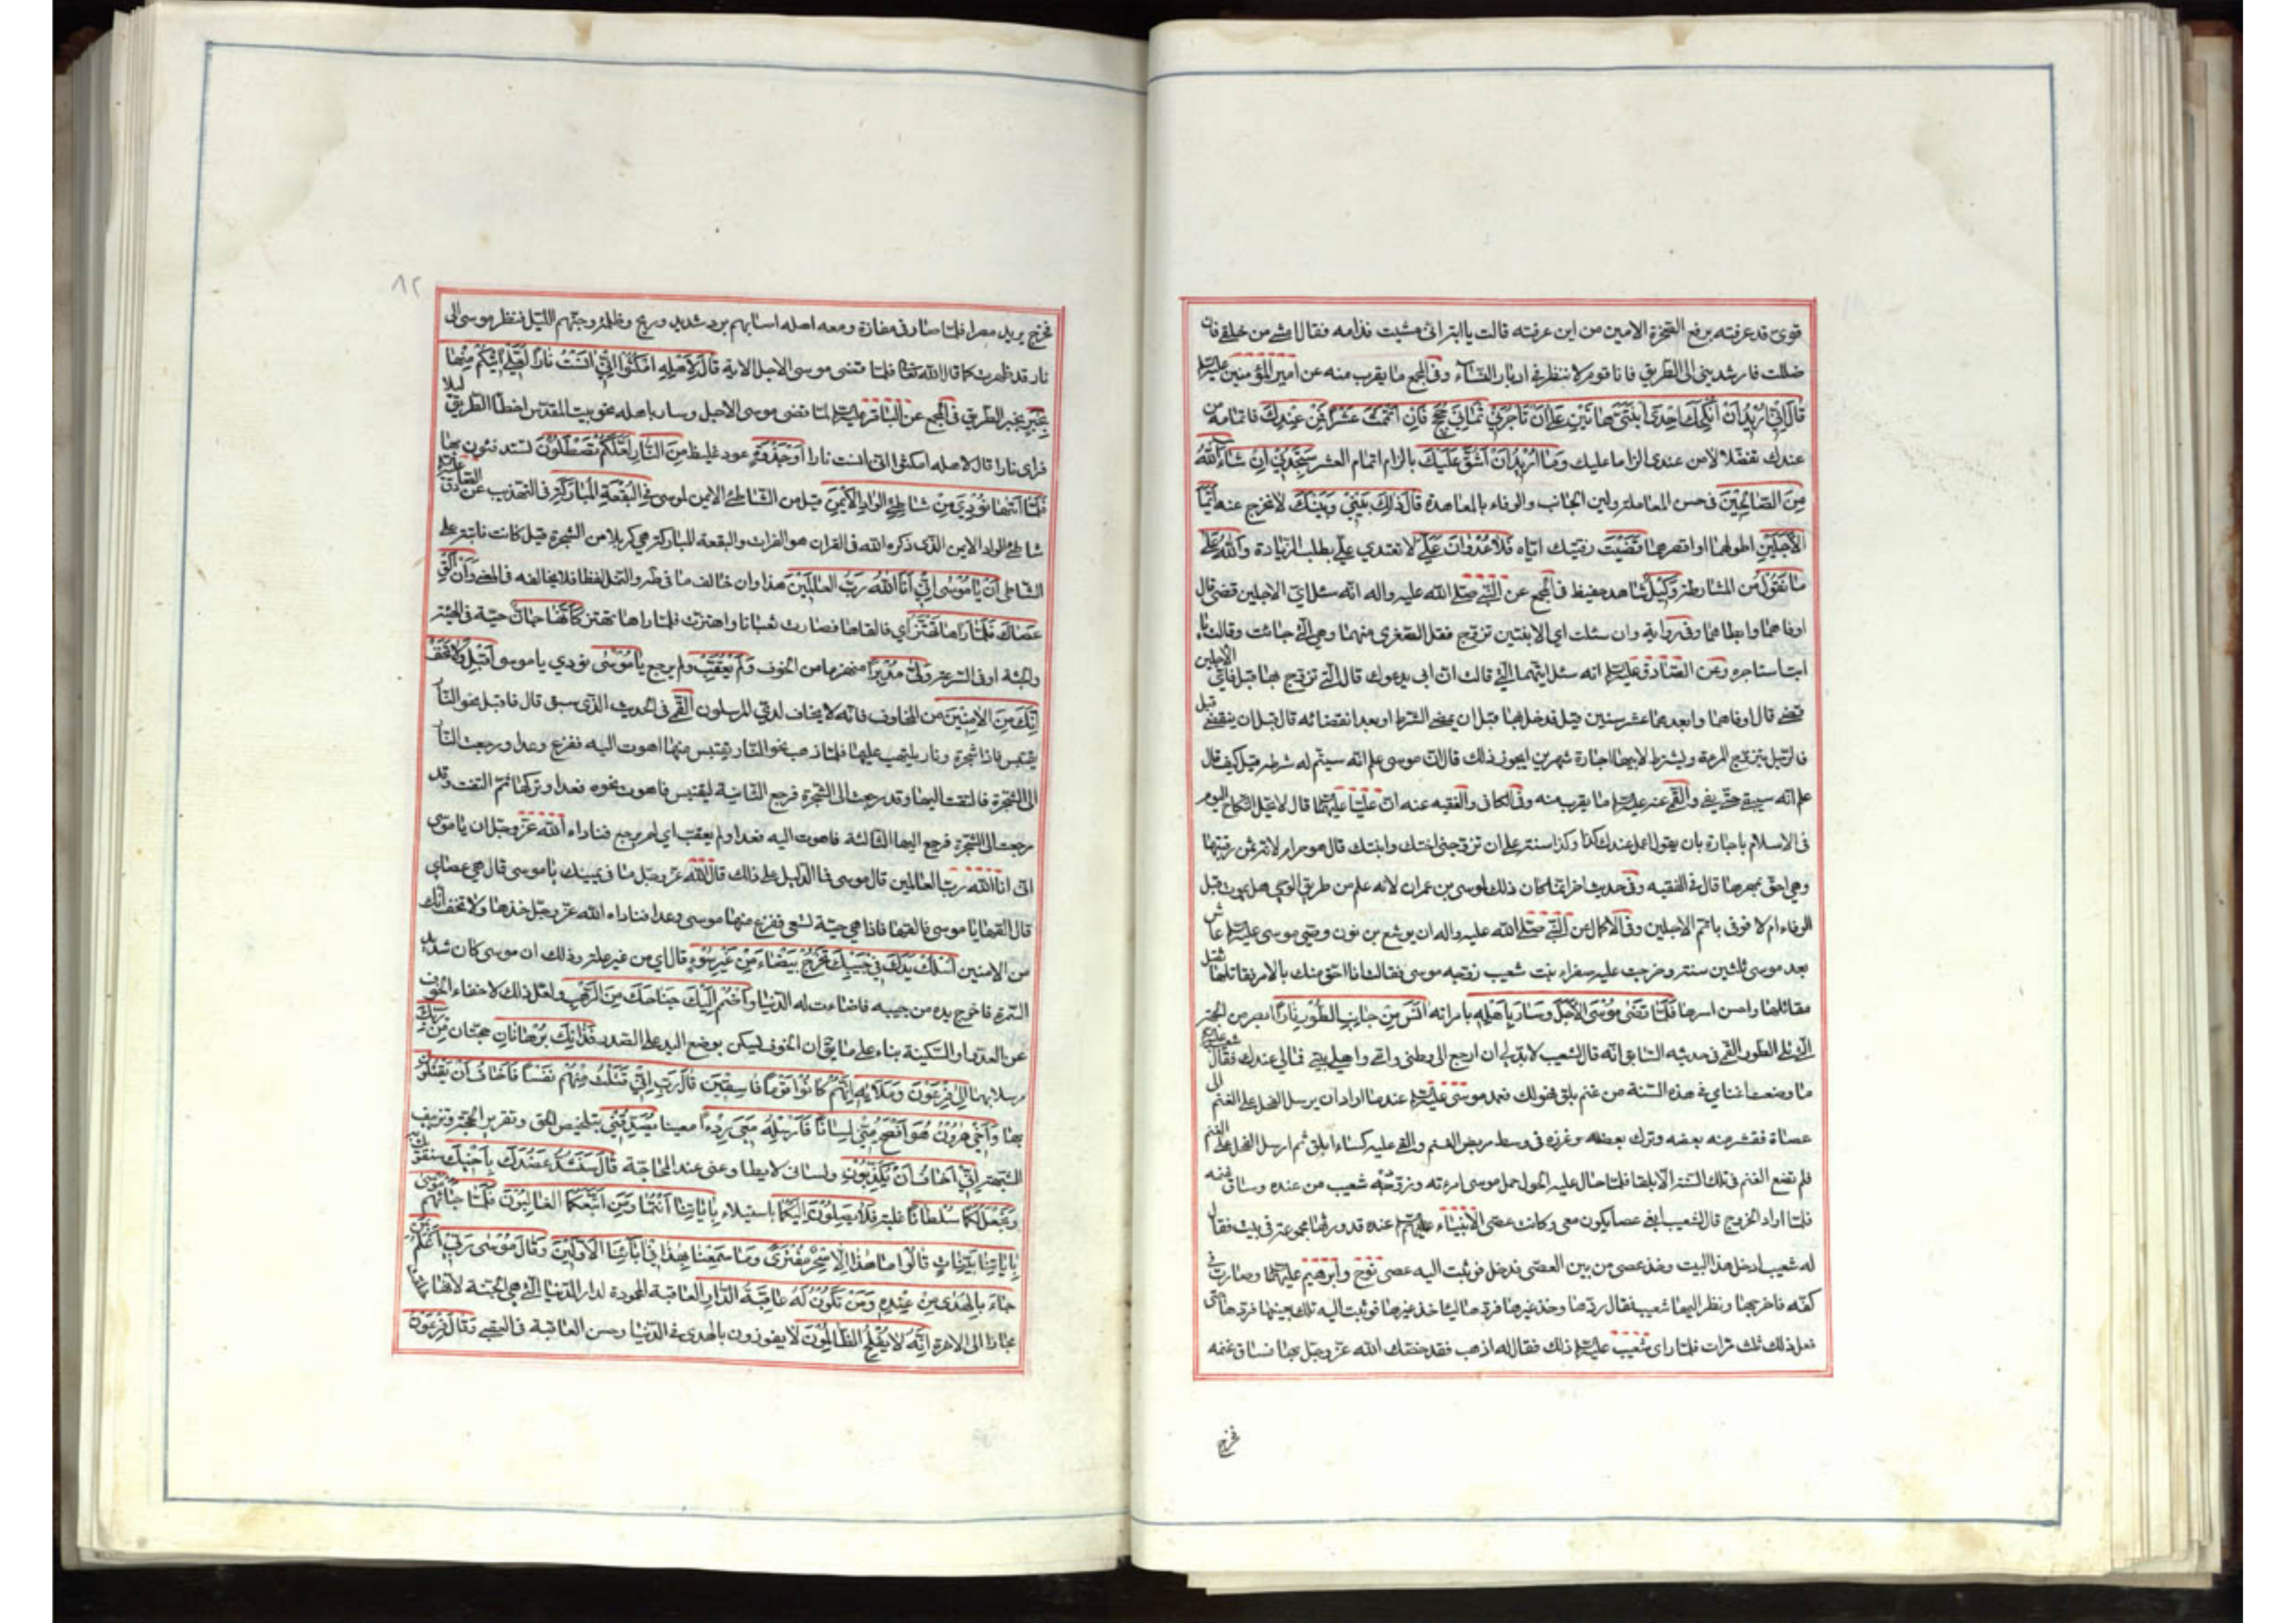 قوىّ قد عرفته برفع الصّخرة الامين من اين عرفته قالت يا ابة انّى مشيت قدّامه فقال امشى من خلفى فان
ضللت فارشدينى الى الطّريق فانا قوم لا ننظر فى ادبار النّساء وفى المجمع ما يقرب منه عن امير المؤمنين عليه السلم
قالَ اِنّى اُريدُ اَنْ اُنْكِحَكَ اِحْدَى ابْنَتَىَّ هاتَيْنِ عَلى اَنْ تَأجُرَنى ثَمانِىَ حِجَجٍ فَاِنْ اَتْمَمْتَ عَشْرًا فَمِنْ عِنْدِكَ فاتمامه من
عندك تفضّلا لا من عندى الزاما عليك وَما اُريدُ اَنْ اَشُقَّ عَلَيْكَ بالزام اتمام العشر سَتَجِدُنى اِنْ شاءَ اللّهُ
مِنَ الصّالِحينَ فى حسن المعاملة ولين الجانب والوفاء بالمعاهدة قالَ ذلِكَ بَيْنى وَبَيْنَكَ لا نخرج عنه اَيَّمَا
الْاَجَلَيْنِ اطولهما او اقصرهما قَضَيْتُ وفيتك ايّاه فَلا عُدْوانَ عَلَىَّ لا تعتدى علىّ بطلب الزّيادة وَاللّهُ عَلى
ما نَقُولُ من المشارطة وَكيلٌ شاهد حفيظ فى المجمع عن النّبى صلّى الله عليه واله انه سئل اىّ الاجلين قضى قال
اوفاهما وابطاهما وفى رواية وان سئلت اى الابنتين تزوّج فقل الصّغرى منهما وهى الّتى جاءت وقالت يا
ابت استاجره وعن الصّادق عليه السلم انه سئل ايّتهما الّتى قالت انّ ابى يدعوك قال الّتى تزوّج بها قيل فاىّ الاجلين
قضى قال اوفاهما وابعدهما عشر سنين قيل فدخل بها قبل ان يمضى الشّرط او بعد انقضائه قال قبل ان ينقضى قيل
فالرّجل يتزوّج المرءة ويشترط لابيها اجارة شهرين ايجوز ذلك قال انّ موسى علم انّه سيتمّ له شرطه قيل كيف قال
علم انّه سيبقى حتّى يفى والقمّى عنه عليه السلم ما يقرب منه وفى الكافى والفقيه عنه انّ عليّا عليهما قال لا يحلّ النّكاح اليوم
فى الاسلام باجارة بان يقول اعمل عندك كذا وكذا سنة على ان تزوّجنى اختك وابنتك قال هو حرام لانّه ثمن رقبتها
وهى احقّ بمهرها قال فى الفقيه وفى حديث اخر انّما كان ذلك لموسى بن عمران لانه علم من طريق الوحى هل يموت قبل
الوفاء ام لا فوفى باتمّ الاجلين وفى الاكمال عن النّبى صلّى الله عليه واله ان يوشع بن نون وصىّ موسى عليه السلم عاش
بعد موسى ثلثين سنة وخرجت عليه صفراء بنت شعيب زوجه موسى فقالت انا احقّ منك بالامر فقاتلها فقتل
مقاتلها واحسن اسرها فَلَمّا قَضى مُوسَى الْاَجَلَ وَسارَ بِاَهْلِه بامراته انَسَ مِنْ جانِبِ الطُّورِ نارًا ابصر من الجهة
الّتى تلى الطّور القمّى فى حديثه السّابق انّه قال لشعيب لا بدّ لى ان ارجع الى وطنى وامّى واهل بيتى فمالى عندك فقال شعيب
ما وضعت اغنامى فى هذه السّنة من غنم بلق فهو لك فعمد موسى عليه السلم عندما اراد ان يرسل الفحل على الغنم الى
عصاه فقشر منه بعضه وترك بعضه وغرزه فى وسط مربض الغنم والقى عليه كساء ابلق ثم ارسل الفحل على الغنم
فلم تضع الغنم فى تلك السّنة الّا بلقا فلمّا حال عليه الحول حمل موسى امرءته وزوّده شعيب من عنده وساق غنمه
فلمّا اراد الخروج قال لشعيب ابغى عصا يكون معى وكانت عصى الانبياء عليهم عنده قد ورثها مجموعة فى بيت فقال
له شعيب ادخل هذا البيت وخذ عصى من بين العصى فدخل فوثبت اليه عصى نوح وابرهيم عليهما وصارت فى
كفّه فاخرجها ونظر اليها شعيب فقال ردّها وخذ غيرها فردّها لياخذ غيرها فوثبت اليه تلك بعينها فردّها حتى
فعل ذلك ثلث مرّات فلمّا راى شعيب عليه السلم ذلك فقال له اذهب فقد خصّك الله عزّ وجلّ بها فساق غنمه
فخرج
٨٢
فخرج يريد مصر فلمّا صار فى مفازة ومعه اهله اصابهم برد شديد وريح وظلمة وجنّهم اللّيل فنظر موسى الى
نار قد ظهرت كما قال الله تعالى فلمّا قضى موسى الاجل الاية قالَ لِاَهْلِهِ امْكُثُوا اِنّى انَسْتُ نارًا لَعَلّى اتيكُمْ مِنْها
بِخَبَرٍ بخبر الطريق فى المجمع عن الباقر عليه السلم لمّا قضى موسى الاجل وسار باهله نحو بيت المقدّس اخطأ الطّريق ليلا
فراى نارا قال لاهله امكثوا انّى انست نارا اَوْ جَذْوَةٍ عود غليظ مِنَ النّارِ لَعَلَّكُمْ تَصْطَلُونَ تستدفئون بها
فَلَمّا اَتيها نُودِىَ مِنْ شاطِئِ الْوادِ الْاَيْمَنِ قيل من الشّاطئ الايمن لموسى فِى الْبُقْعَةِ الْمُبارَكَةِ فى التهذيب عن الصّادق عليه السلم
شاطئ الواد الايمن الّذى ذكره الله فى القران هو الفرات والبقعة المباركة هى كربلا من الشّجرة قيل كانت نابتة على
الشّاطى اَنْ يا مُوسى اِنّى اَنَا اللّهُ رَبُّ الْعالَمينَ هذا وان خالف ما فى طه والنّمل لفظا فلا يخالفه فى المعنى وَاَنْ اَلْقِ
عَصاكَ فَلَمّا رَاها تَهْتَزُّ اى فالقاها فصارت ثعبانا واهتزّت فلمّا راها تهتز كَاَنَّها جانٌّ حيّة فى الهيئة
والجثة او فى السّرعة وَلّى مُدْبِرًا منهزما من الخوف وَلَمْ يُعَقِّبْ ولم يرجع يا مُوسى نودى يا موسى اَقْبِلْ وَلا تَخَفْ
اِنَّكَ مِنَ الْامِنينَ من المخاوف فانّه لا يخاف لدىّ المرسلون القمّى فى الحديث الّذى سبق قال فاقبل نحو النّار
يقتبس فاذا شجرة ونار يلتهب عليها فلمّا ذهب نحو النّار يقتبس منها اهوت اليه ففزع وعدا ورجعت النّار
الى الشّجرة فالتفت اليها وقد رجعت الى الشّجرة فرجع الثّانية ليقتبس فاهوت نحوه فعدا وتركها ثمّ التفت وقد
رجعت الى الشّجرة فرجع اليها الثّالثة فاهوت اليه فعدا ولم يعقّب اى لم يرجع فناداه الله عزّ وجلّ ان يا موسى
انى انا الله ربّ العالمين قال موسى فما الدّليل على ذلك قال الله عزّ وجلّ ما فى يمينك يا موسى قال هى عصاى
قال القها يا موسى فالقيها فاذا هى حيّة تسعى ففزع منها موسى وعدا فناداه الله عزّ وجلّ خذها ولا تخف انّك
من الامنين اُسْلُكْ يَدَكَ فى جَيْبِكَ تَخْرُجْ بَيْضاءَ مِنْ غَيْرِ سُوءٍ قال اى من غير علة وذلك ان موسى كان شديد
السّمرة فاخرج يده من جيبه فاضاءت له الدّنيا وَاضْمُمْ اِلَيْكَ جَناحَكَ مِنَ الرَّهْبِ ولعلّ ذلك لاخفاء الخوف
عن العدوّ او السّكينة بناء على ما يق ان الخوف ليسكن بوضع اليد على الصّدر فَذانِكَ بُرْهانانِ حجّتان مِنْ رَبِّكَ
مرسلا بهما اِلى فِرْعَوْنَ وَمَلَائِه اِنَّهُمْ كانُوا قَوْمًا فاسِقينَ قالَ رَبِّ اِنّى قَتَلْتُ مِنْهُمْ نَفْسًا فَاَخافُ اَنْ يَقْتُلُونِ
بها وَاَخى هرُونُ هُوَ اَفْصَحُ مِنّى لِسانًا فَاَرْسِلْهُ مَعِىَ رِدْءًا معينا يُصَدِّقُنى بتلخيص الحق وتقرير الحجّة وتزييف
الشّبهة اِنّى اَخافُ اَنْ يُكَذِّبُونِ ولسانى لا يطاوعنى عند المحاجّة قالَ سَنَشُدُّ عَضُدَكَ بِاَخيكَ سنقوّيك به
وَنَجْعَلُ لَكُما سُلْطانًا غلبة فَلا يَصِلُونَ اِلَيْكُما باستيلاء بِاياتِنا اَنْتُما وَمَنِ اتَّبَعَكُمَا الْغالِبُونَ فَلَمّا جاءَهُمْ مُوسى
بِاياتِنا بَيِّناتٍ قالُوا ما هذا اِلّا سِحْرٌ مُفْتَرًى وَما سَمِعْنا بِهذا فى ابائِنَا الْاَوَّلينَ وَقالَ مُوسى رَبّى اَعْلَمُ بِمَنْ
جاءَ بِالْهُدى مِنْ عِنْدِه وَمَنْ تَكُونُ لَهُ عاقِبَةُ الدّارِ العاقبة المحمودة لدار الدّنيا الّتى هى الجنّة لانّها خلقت
مجازا الى الاخرة اِنَّهُ لا يُفْلِحُ الظّالِمُونَ لا يفوزون بالهدى فى الدّنيا وحسن العاقبة فى العقبى وَقالَ فِرْعَوْنُ